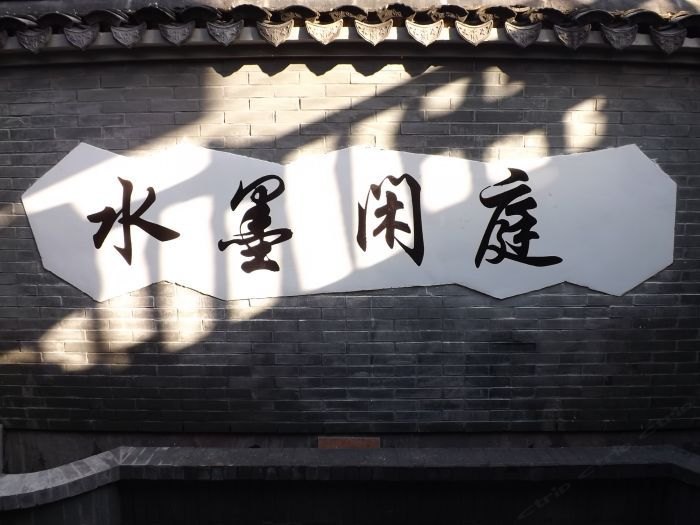 水墨闲庭
ctrip